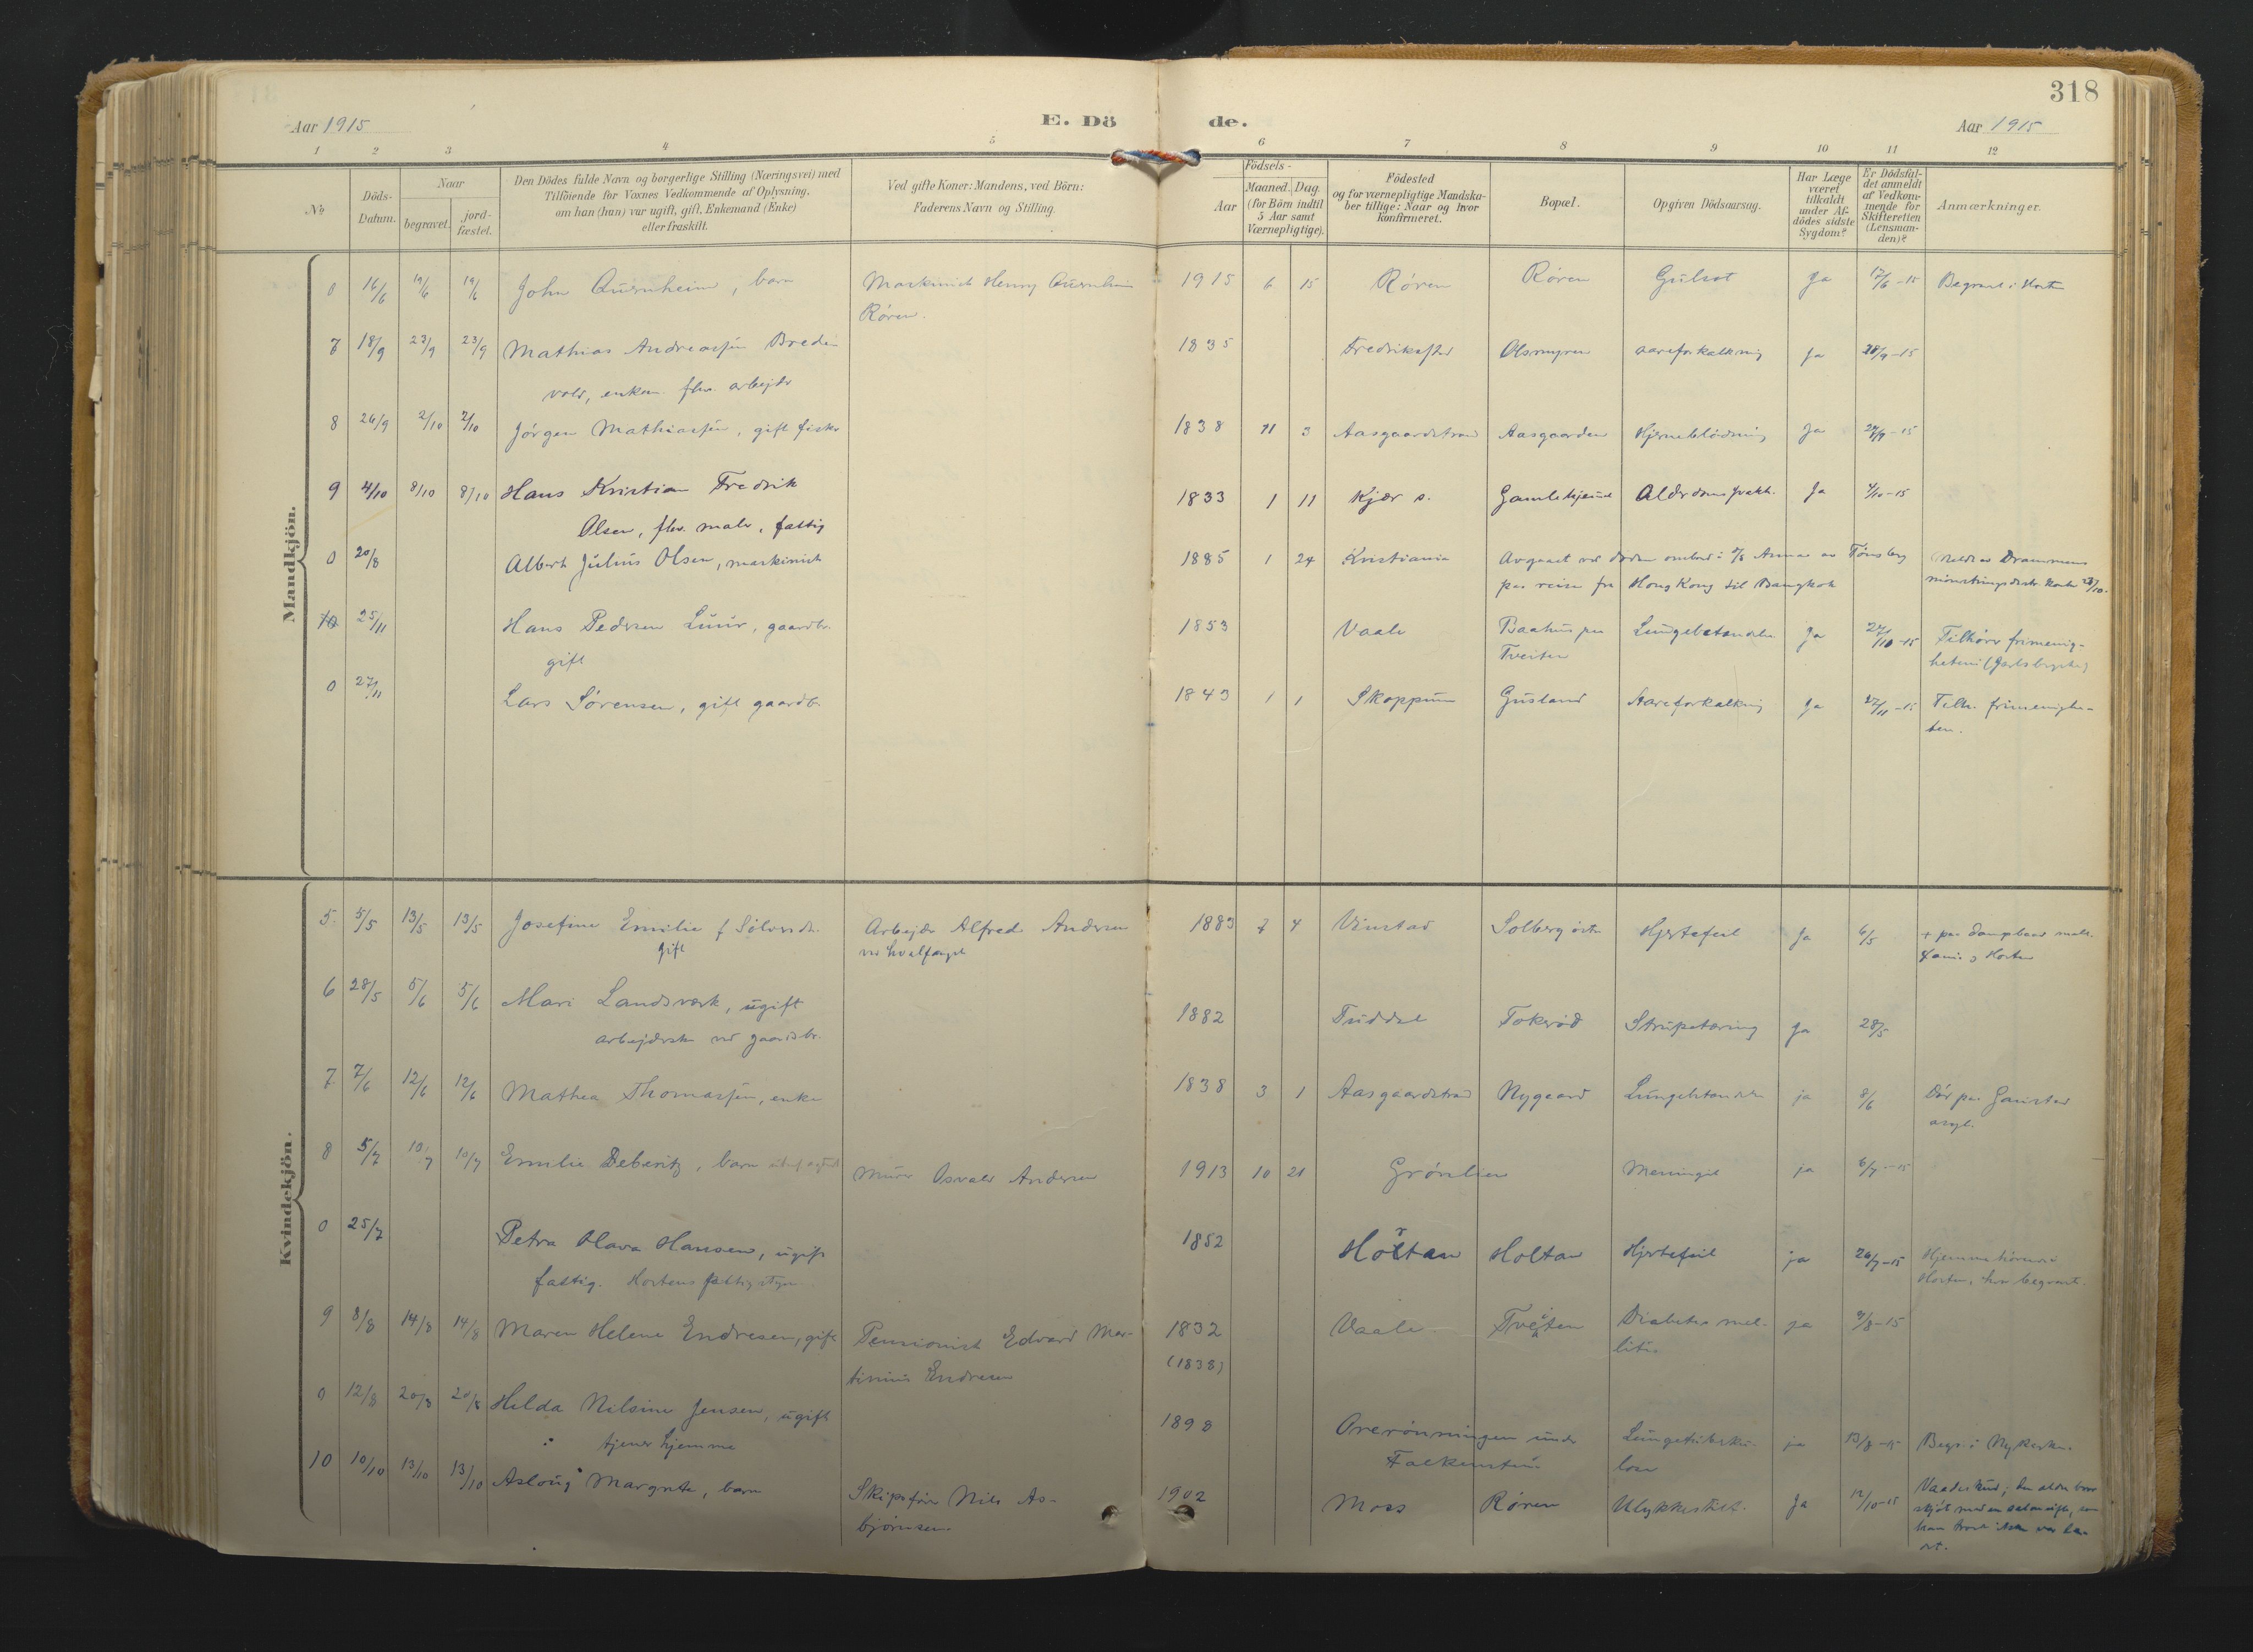 318
Aar 1915
E. Dö
de.
Aar 1915
1 2 3 4 5 6 7 8 9 10 11 12
No
Döds-
Datum.
Naar
begravet.
jord-
fæstet.
Den Dödes fulde Navn og borgerlige Stilling (Næringsvei) med
Tilföiende for Voxnes Vedkommende af Oplysning,
om han (hun) var ugift, gift, Enkemand (Enke)
eller fraskilt.
Ved gifte Koner: Mandens, ved Börn:
Faderens Navn og Stilling.
Födsels-
Aar
Maaned. Dag.
(for Börn indtil
5 Aar samt
Værnepligtige).
Födested
og for værnepligtige Mandska-
ber tillige: Naar og hvor
konfirmeret.
Bopæl.
Opgiven Dödsaarsag.
Har Læge
været
tilkaldt
under Af-
dödes sidste
Sygdom?
Er Dödsfal-
det anmeldt
af Vedkom-
mende for
Skifteretten
(Lensman-
den)?
Anmærkninger.
Mandkjön.
0 16/6 19/6 19/6 John Quernheim, barn Maskinist Henry 1915 6 15 Røren Røren Gulsot Ja 17/6-15 Begravet i Horten
Røren.
7 18/9 23/9 23/9 Mathias Andreassen Brede- 1835 Fredrikshald Olsmyren aareforkalkning Ja 20/9-15
vold, enkem. fhv. arbejder
8 26/9 2/10 2/10 Jørgen Mathiassen, gift fisker 1838 11 3 Aasgaardstrand Aasgaarden Hjerneblødning Ja 27/9-15
9 4/10 8/10 8/10 Hans Kristian Fredrik 1833 1 11 Kjær s. Gamlehjemmet Alderdomssvakh. Ja 4/10-15
Olsen, fhv. maler, fattig
0 20/8 Albert Julius Olsen, maskinist 1885 1 24 Kristiania Avgaaet ved døden ombord i s/s Anna av Tønsberg Meldt av Drammens
paa reise fra Hong Kong til Bangkok mønstringsdistr.
10 25/11 Hans Pedersen Luur, gaardbr. 1853 Vaale Baahus paa Lungebetændelse Ja 27/10-15 Tilhører frimenig-
gift Tveiten heten i
0 27/11 Lars Sørensen, gift gaardbr. 1843 1 1 Skoppum Gusland Aareforkalkning Ja 27/11-15 Tilh. frimenighe-
ten.
Kvindekjön.
5 5/5 13/5 13/5 Josefine Emilie f. Arbejder Alfred Andersen 1883 7 4 Vinstad Solberg østre Hjertefeil Ja 6/5 + paa
gift ved hvalfangst Horten
6 28/5 5/6 5/6 Mari Landsværk, ugift 1882 Tuddal Tokerød Strupetæring Ja 28/5
arbejderske ved gaardsbr.
7 7/6 12/6 12/6 Mathea Thomassen, enke 1838 3 1 Aasgaardstrand Nygaard Lungebetændelse ja 8/6 Død paa Gaustad
asyl.
8 5/7 10/7 10/7 Emilie Deberitz, barn Murer Osvald Andersen 1913 10 21 Grønlien Meningit ja 6/7-15
0 25/7 Petra Olava Hansen, ugift 1852 Holtan Holtan Hjertefeil ja 26/7-15 Hjemmehørende i
fattig. Hortens fattigstyre Horten, hvor begravet.
9 8/8 14/8 14/8 Maren Helene Endresen, gift Pensionist Edvard Mar- 1832 Vaale Tveiten Diabetes mel- ja 9/8-15
tinius Endresen (1838) litis
0 12/8 20/8 20/8 Hilda Nilsine Jensen, ugift 1898 Ørerønningen under Lungetuberku- ja 13/8-15 Begr. i Nykirke.
tjener hjemme Falkensten lose
10 10/10 13/10 13/10 Aslaug Margrete, barn Skipsfører Nils As- 1902 Moss Røren Ulykkestilf. Ja 12/10-15 Vaadeskud; den ældre bror
bjørnsen skjøt med en salonrifle, som
han trodde ikke var la-
det.